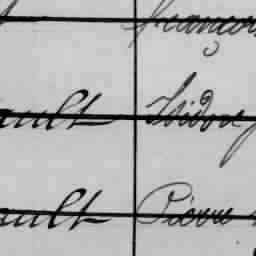 François
ault Isidore
ault Pierre